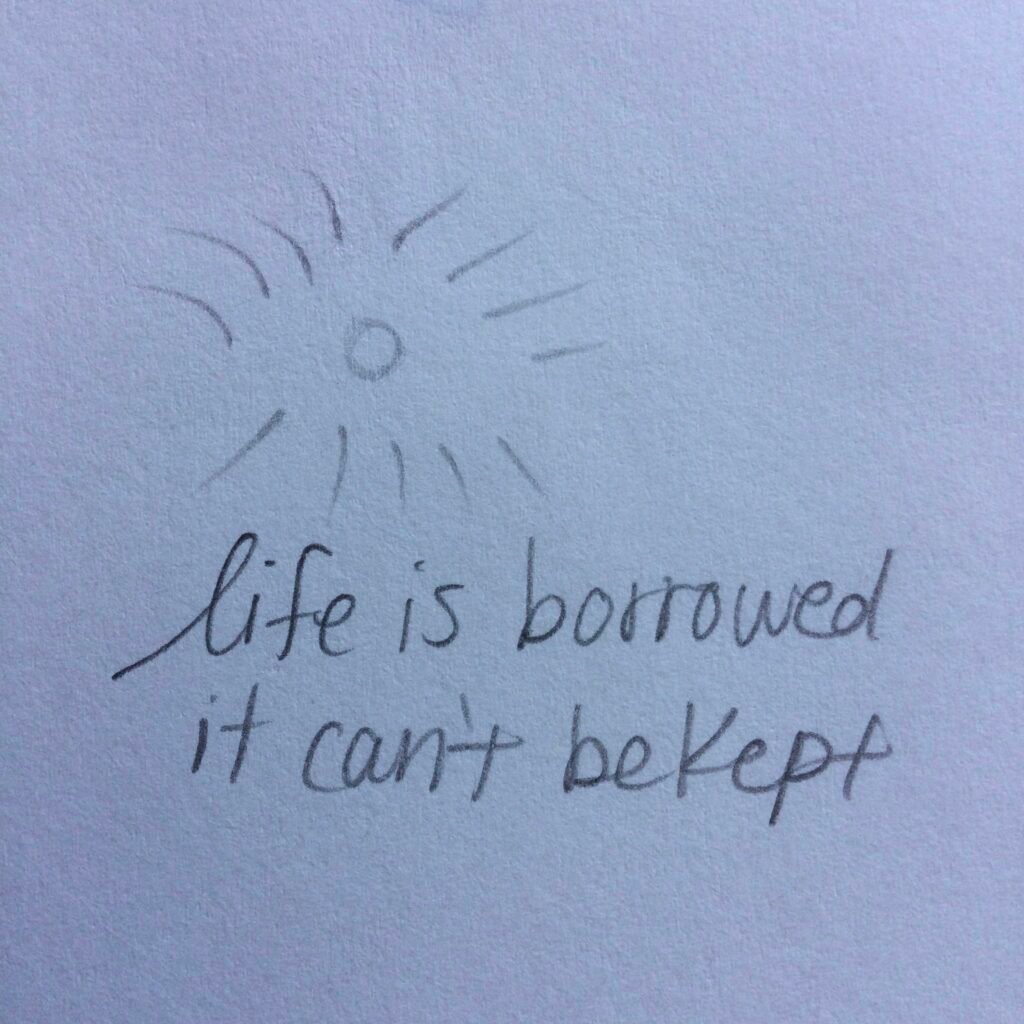 life is borrowed
it can't be kept